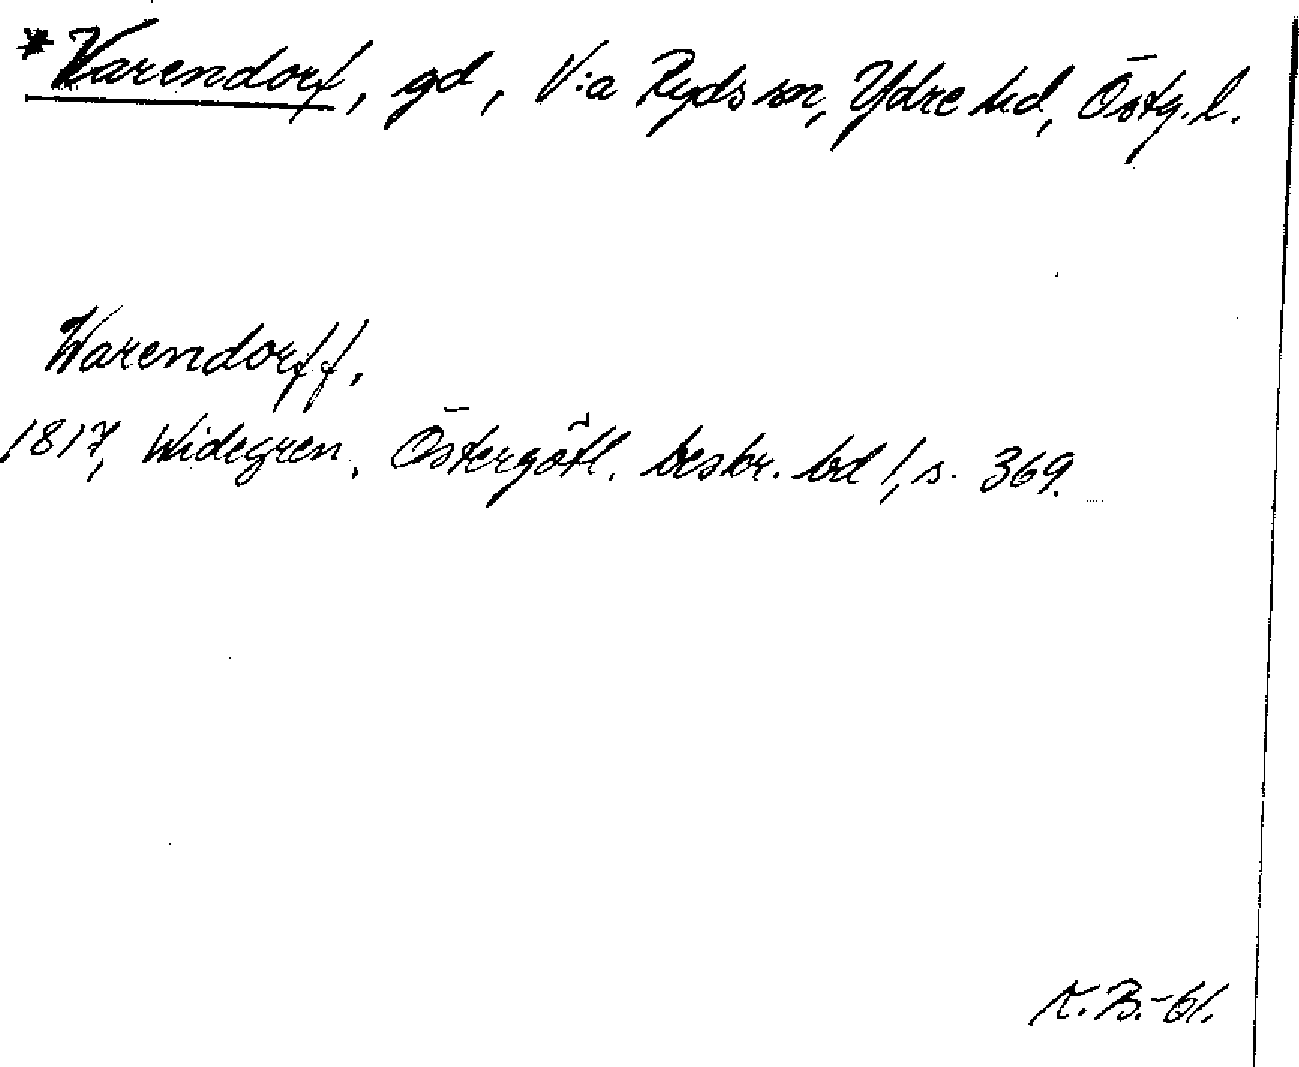 *Varendorf, gd, V:a Ryds sn, Ydre hd, Östg. l.
Warendorff,
1817, Widegren, Östergötl. beskr. bd 1, s. 369.
K. B.-61.